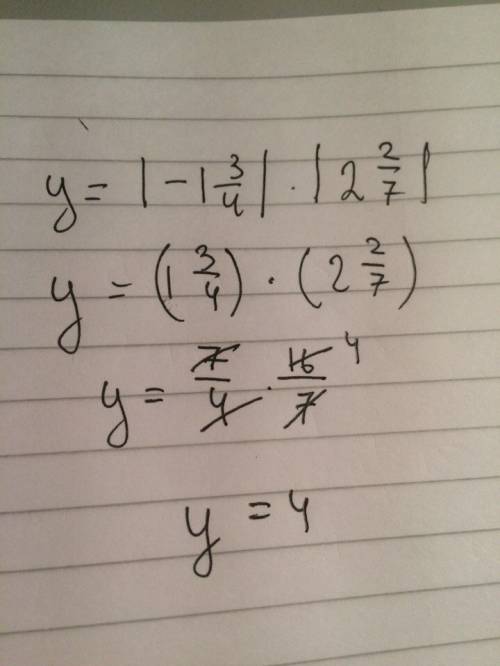 y = |-1 3/4| · |2 2/7|
y = (1 3/4) · (2 2/7)
y = 7/4 · 16/7 4
y = 4